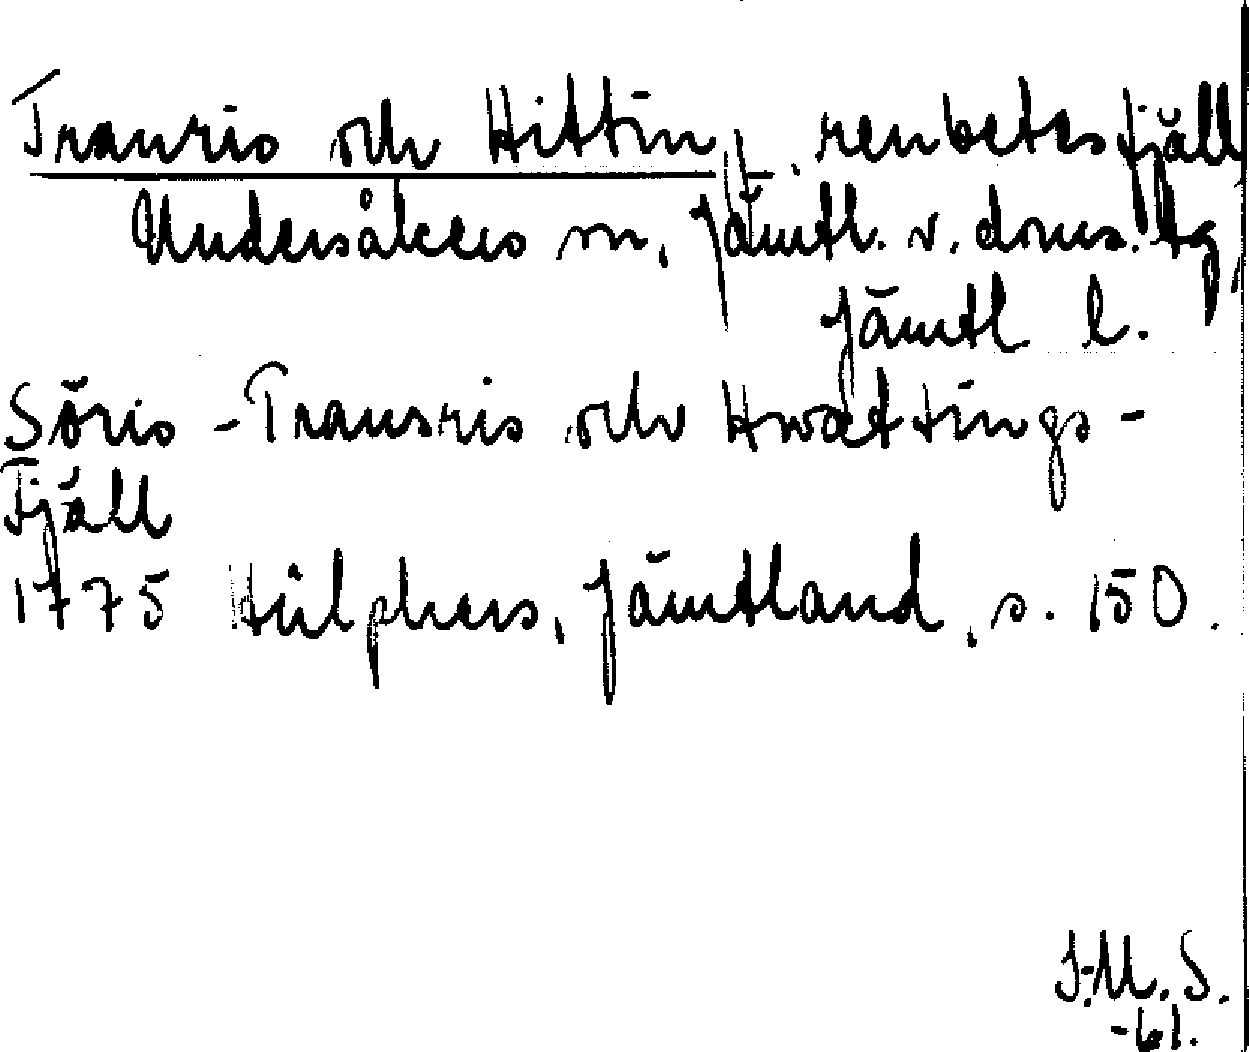 Tranris och Hittin, renbetesfjäll,
Undersåkers sn, Jämtl. v. doms. tg,
Jämtl l.
Söris - Transris och Hwættings-
Fjäll
1775 Hülphers, Jämtland, s. 150.
J.M.S.
-61.